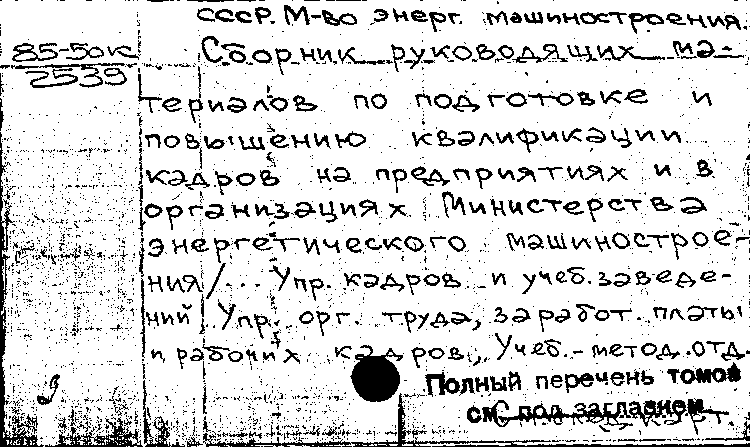 СССР. М-во энерг. машиностроения.
85-50к
2539
Сборник руководящих ма-
териалов по подготовке и
повышению квалификации
кадров на предприятиях и в
организациях Министерства
энергетического машинострое-
ния/... Упр. кадров и учеб. заведе-
ний, Упр. орг. труда, заработ. платы
и рабочих кадров, Учеб.-метод. отд.
Полный перечень томов
см. под заглавием